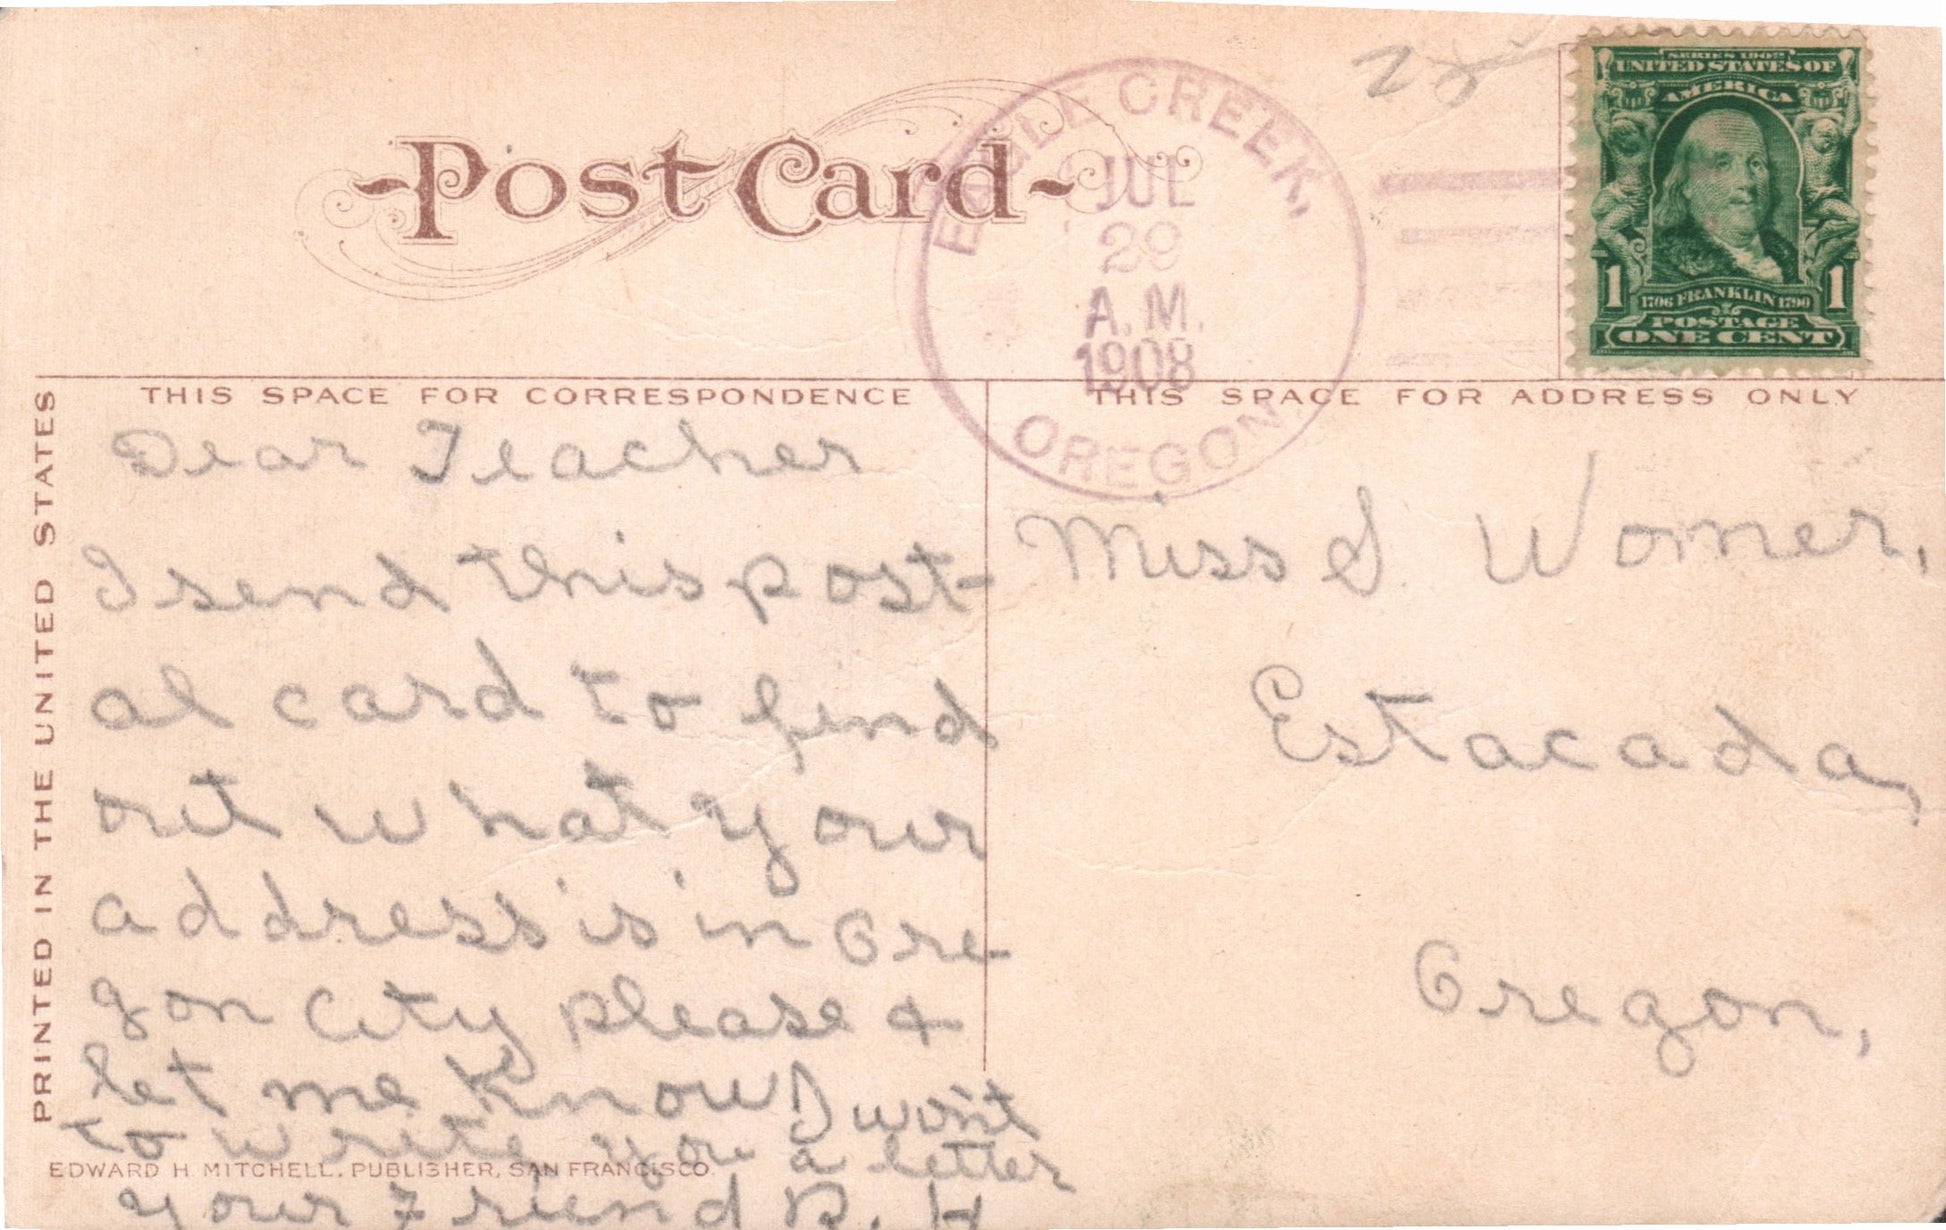 Post Card
EAGLE CREEK,
JUL
29
A.M.
1908
OREGON.
SERIES 1902
UNITED STATES OF
AMERICA
1706 FRANKLIN 1790
1 1
POSTAGE
ONE CENT
THIS SPACE FOR CORRESPONDENCE
THIS SPACE FOR ADDRESS ONLY
PRINTED IN THE UNITED STATES
Dear Teacher
I send this post-
al card to find
out what your
address is in Ore-
gon City please &
let me know I won't
to write you a letter
your Friend B. H
EDWARD H. MITCHELL, PUBLISHER, SAN FRANCISCO
Miss S. Womer,
Estacada,
Oregon,